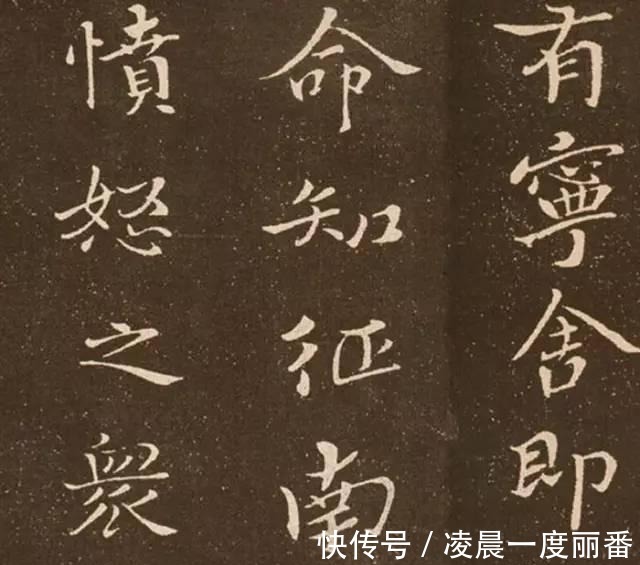 有寧舍即
命知征南
憤怒之衆
快传号/凌晨一度丽番